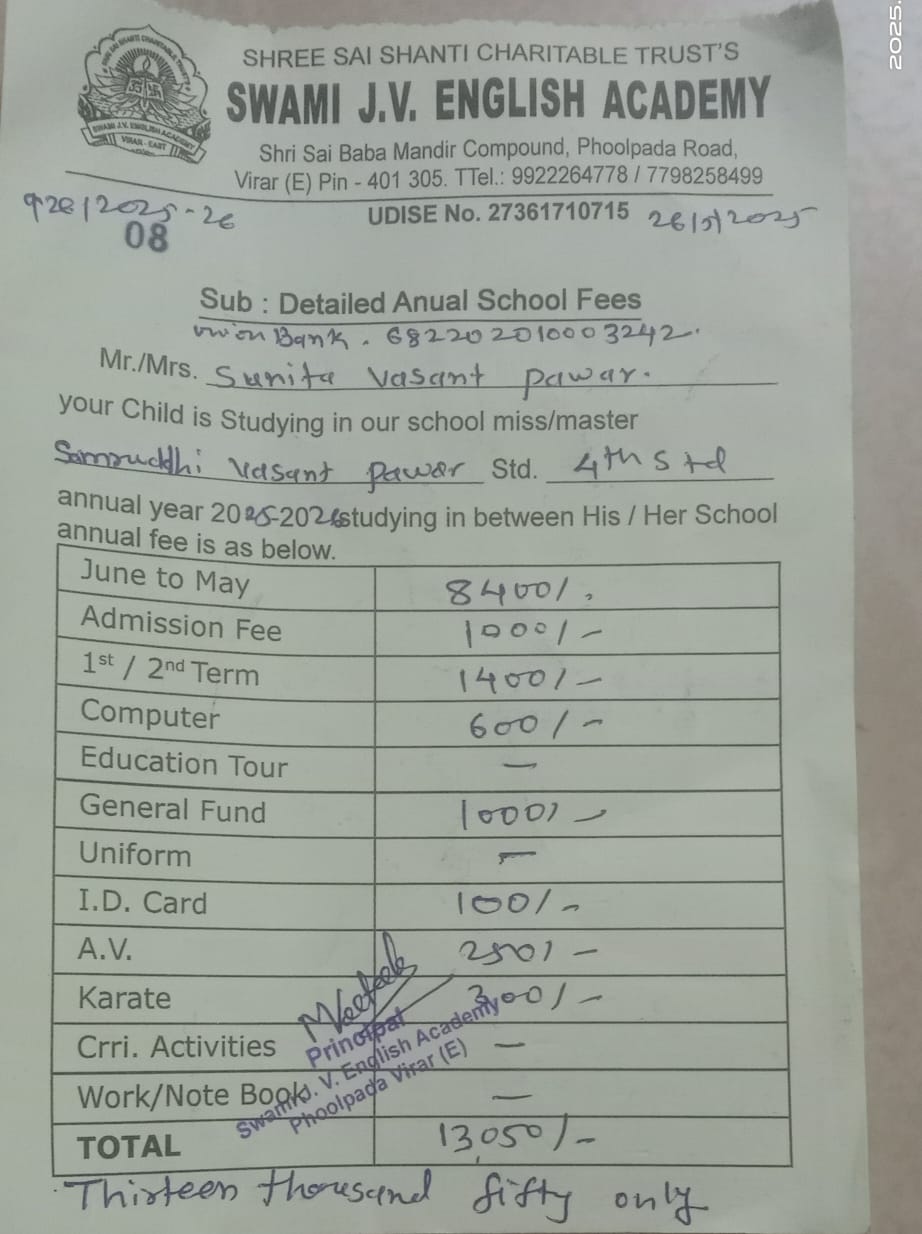 2025.
SHREE SAI SHANTI CHARITABLE TRUST'S
SWAMI J.V. ENGLISH ACADEMY
Shri Sai Baba Mandir Compound, Phoolpada Road,
Virar (E) Pin - 401 305. TTel.: 9922264778 / 7798258499
SWAMI J.V. ENGLISH ACADEMY
VIRAR - EAST
UDISE No. 27361710715 26/5/2025
928/2025-26
08
Sub : Detailed Anual School Fees
Union Bank. 682202010003242.
Mr./Mrs. Sunita Vasant Pawar.
your Child is Studying in our school miss/master
Samruddhi Vasant Pawar Std. 4th Std
annual year 2025-2026 studying in between His / Her School
annual fee is as below.
June to May 8400/.
Admission Fee 1000/-
1st / 2nd Term 1400/-
Computer 600/-
Education Tour —
General Fund 1000/-
Uniform —
I.D. Card 100/-
A.V. 250/-
Karate 300/-
Crri. Activities —
Work/Note Book —
TOTAL 13,050/-
Principal
Swami J. V. English Academy
Phoolpada Virar (E)
Thirteen thousand fifty only